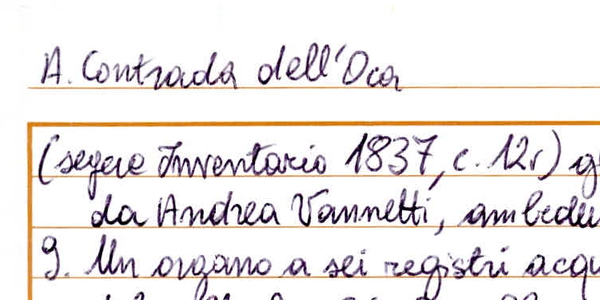 A. Contrada dell'Oca
(segue Inventario 1837, c. 12r)
da Andrea Vannetti,
9. Un organo a sei registri